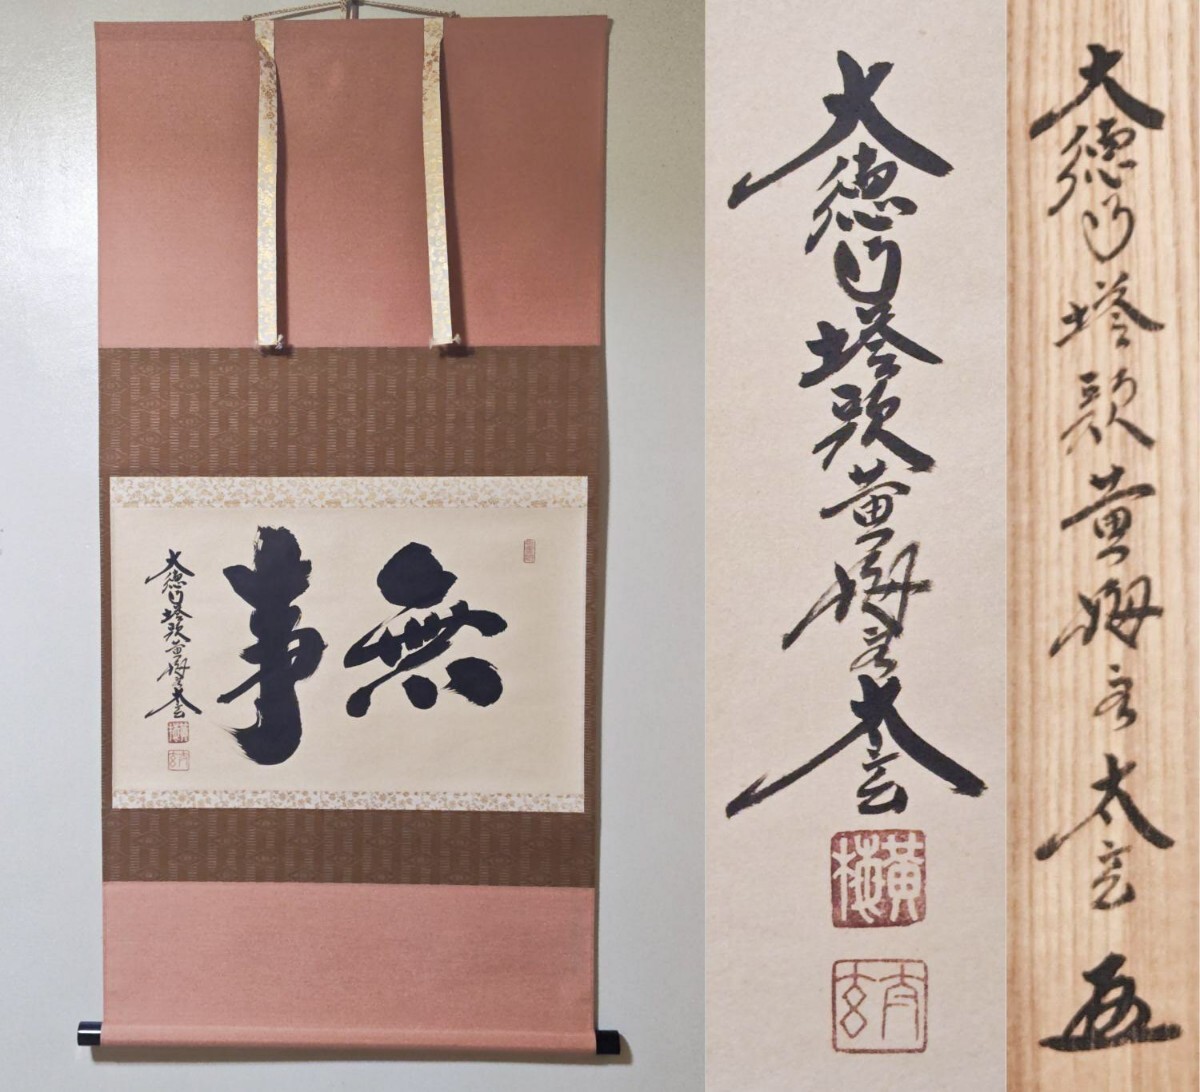 無事
大徳寺塔頭黄梅院太玄
黄梅
太玄
大徳寺塔頭黄梅院太玄
黄梅
太玄
大徳寺塔頭黄梅院太玄